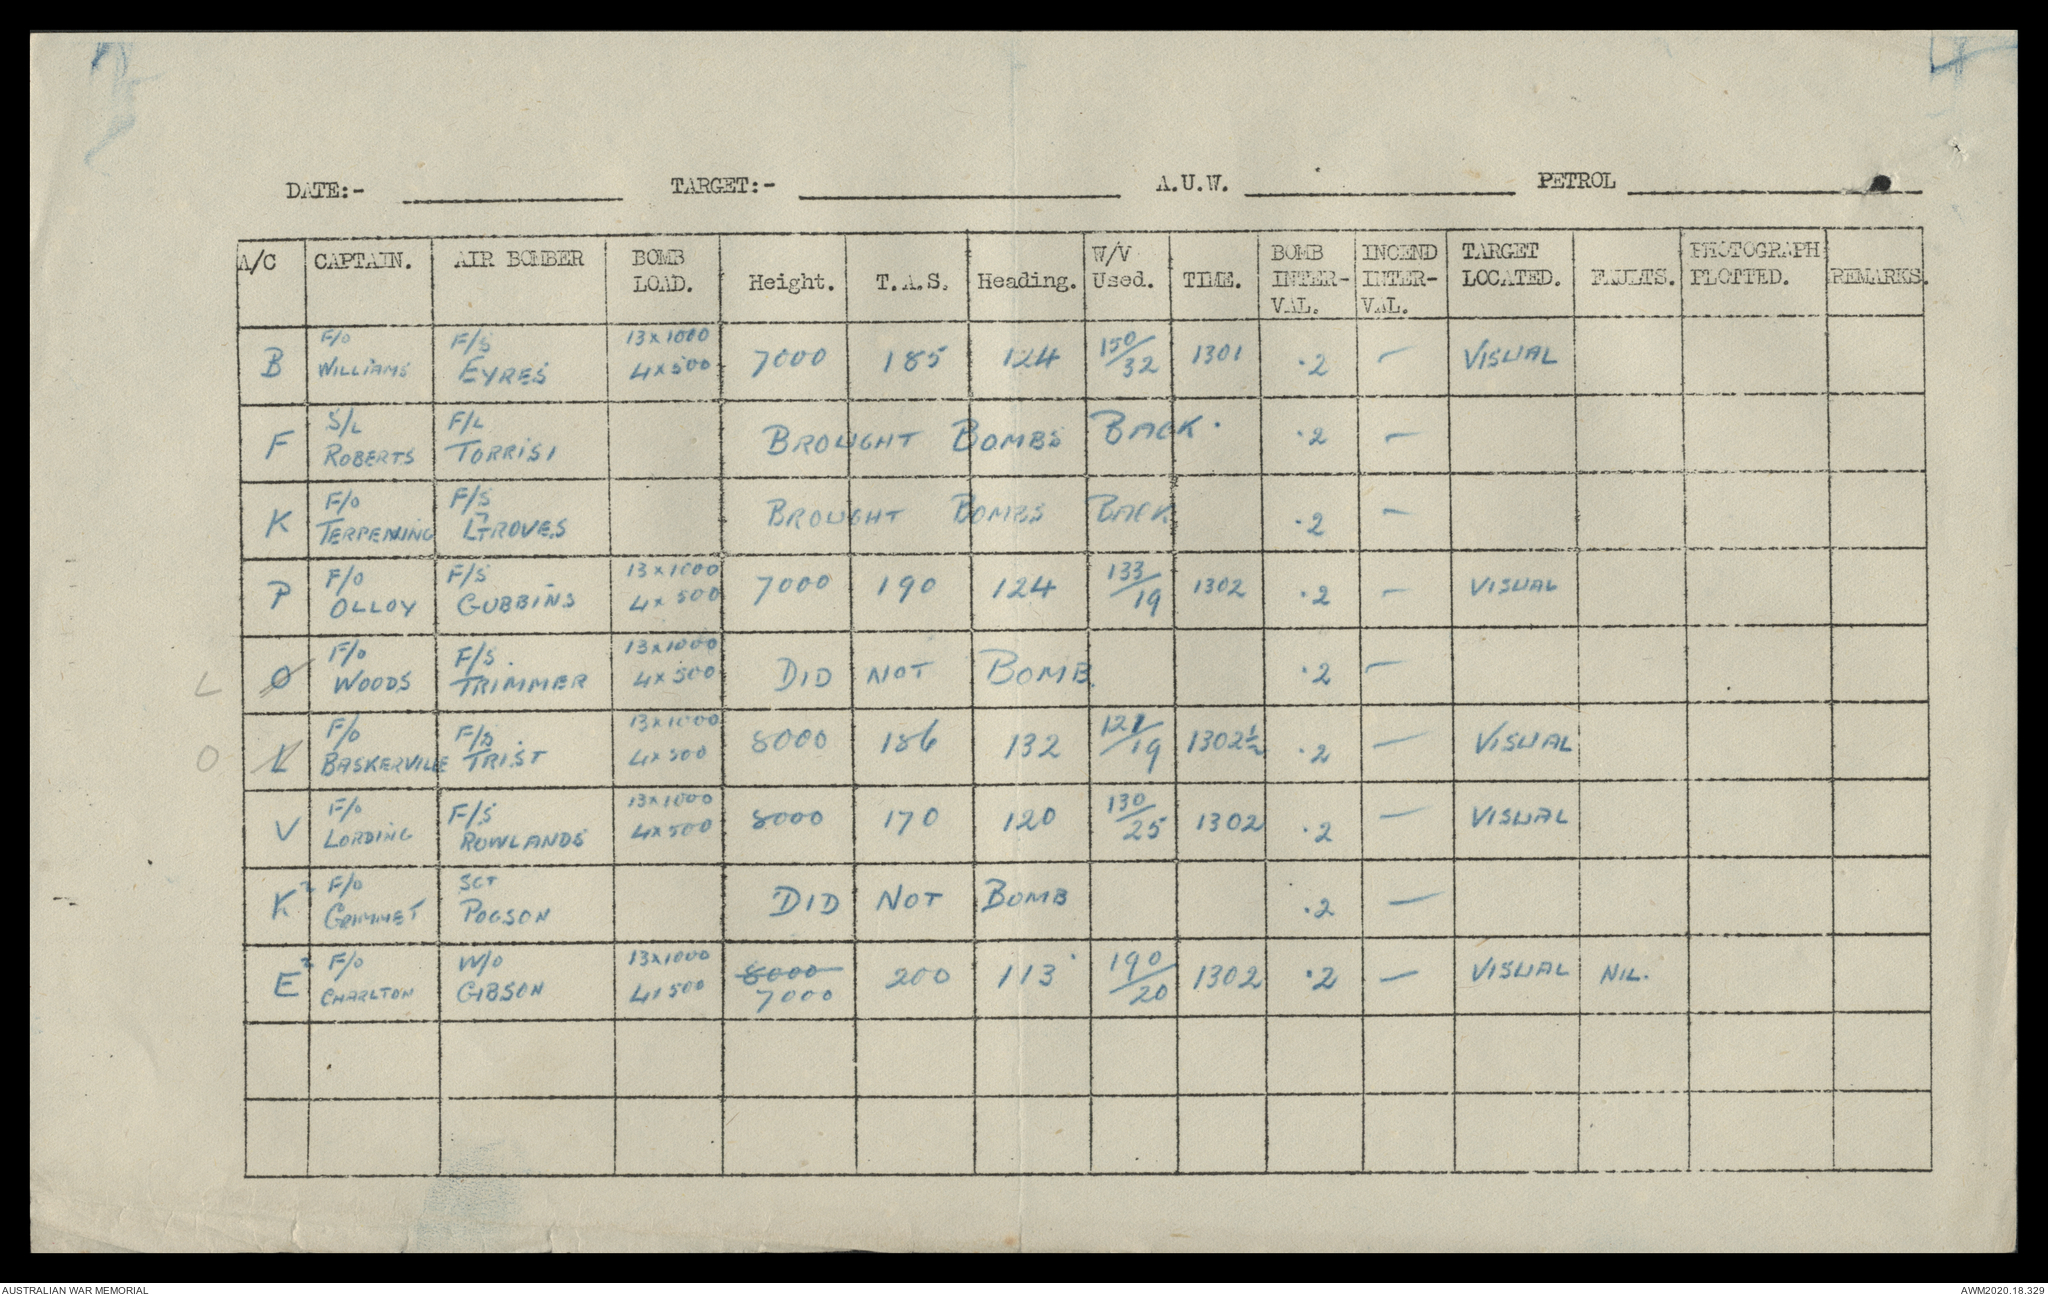 4
DATE:- TARGET:- A.U.W. PETROL
A/C CAPTAIN. AIR BOMBER BOMB LOAD. Height. T.A.S. Heading. W/V Used. TIME. BOMB INTER-VAL. INCEND INTER-VAL. TARGET LOCATED. FAULTS. PHOTOGRAPH PLOTTED. REMARKS.
B F/O WILLIAMS F/S EYRES 13x1000 4x500 7000 185 124 150/32 1301 .2 — VISUAL
F S/L ROBERTS F/L TORRISI BROUGHT BOMBS BACK. .2 —
K F/O TERPENNING F/S GROVES BROUGHT BOMBS BACK .2 —
P F/O OLLOY F/S GUBBINS 13x1000 4x500 7000 190 124 133/19 1302 .2 — VISUAL
L O F/O WOODS F/S. TRIMMER 13x1000 4x500 DID NOT BOMB. .2 —
O L F/O BASKERVILLE F/S. TRIST 13x1000 4x500 8000 186 132 121/19 1302½ .2 — VISUAL
V F/O LORDING F/S ROWLANDS 13x1000 4x500 8000 170 120 130/25 1302 .2 — VISUAL
K² F/O GRIMMET SGT POGSON DID NOT BOMB .2 —
E² F/O CHARLTON W/O GIBSON 13x1000 4x500 8000 7000 200 113 190/20 1302 .2 — VISUAL NIL.
AUSTRALIAN WAR MEMORIAL AWM2020.18.329